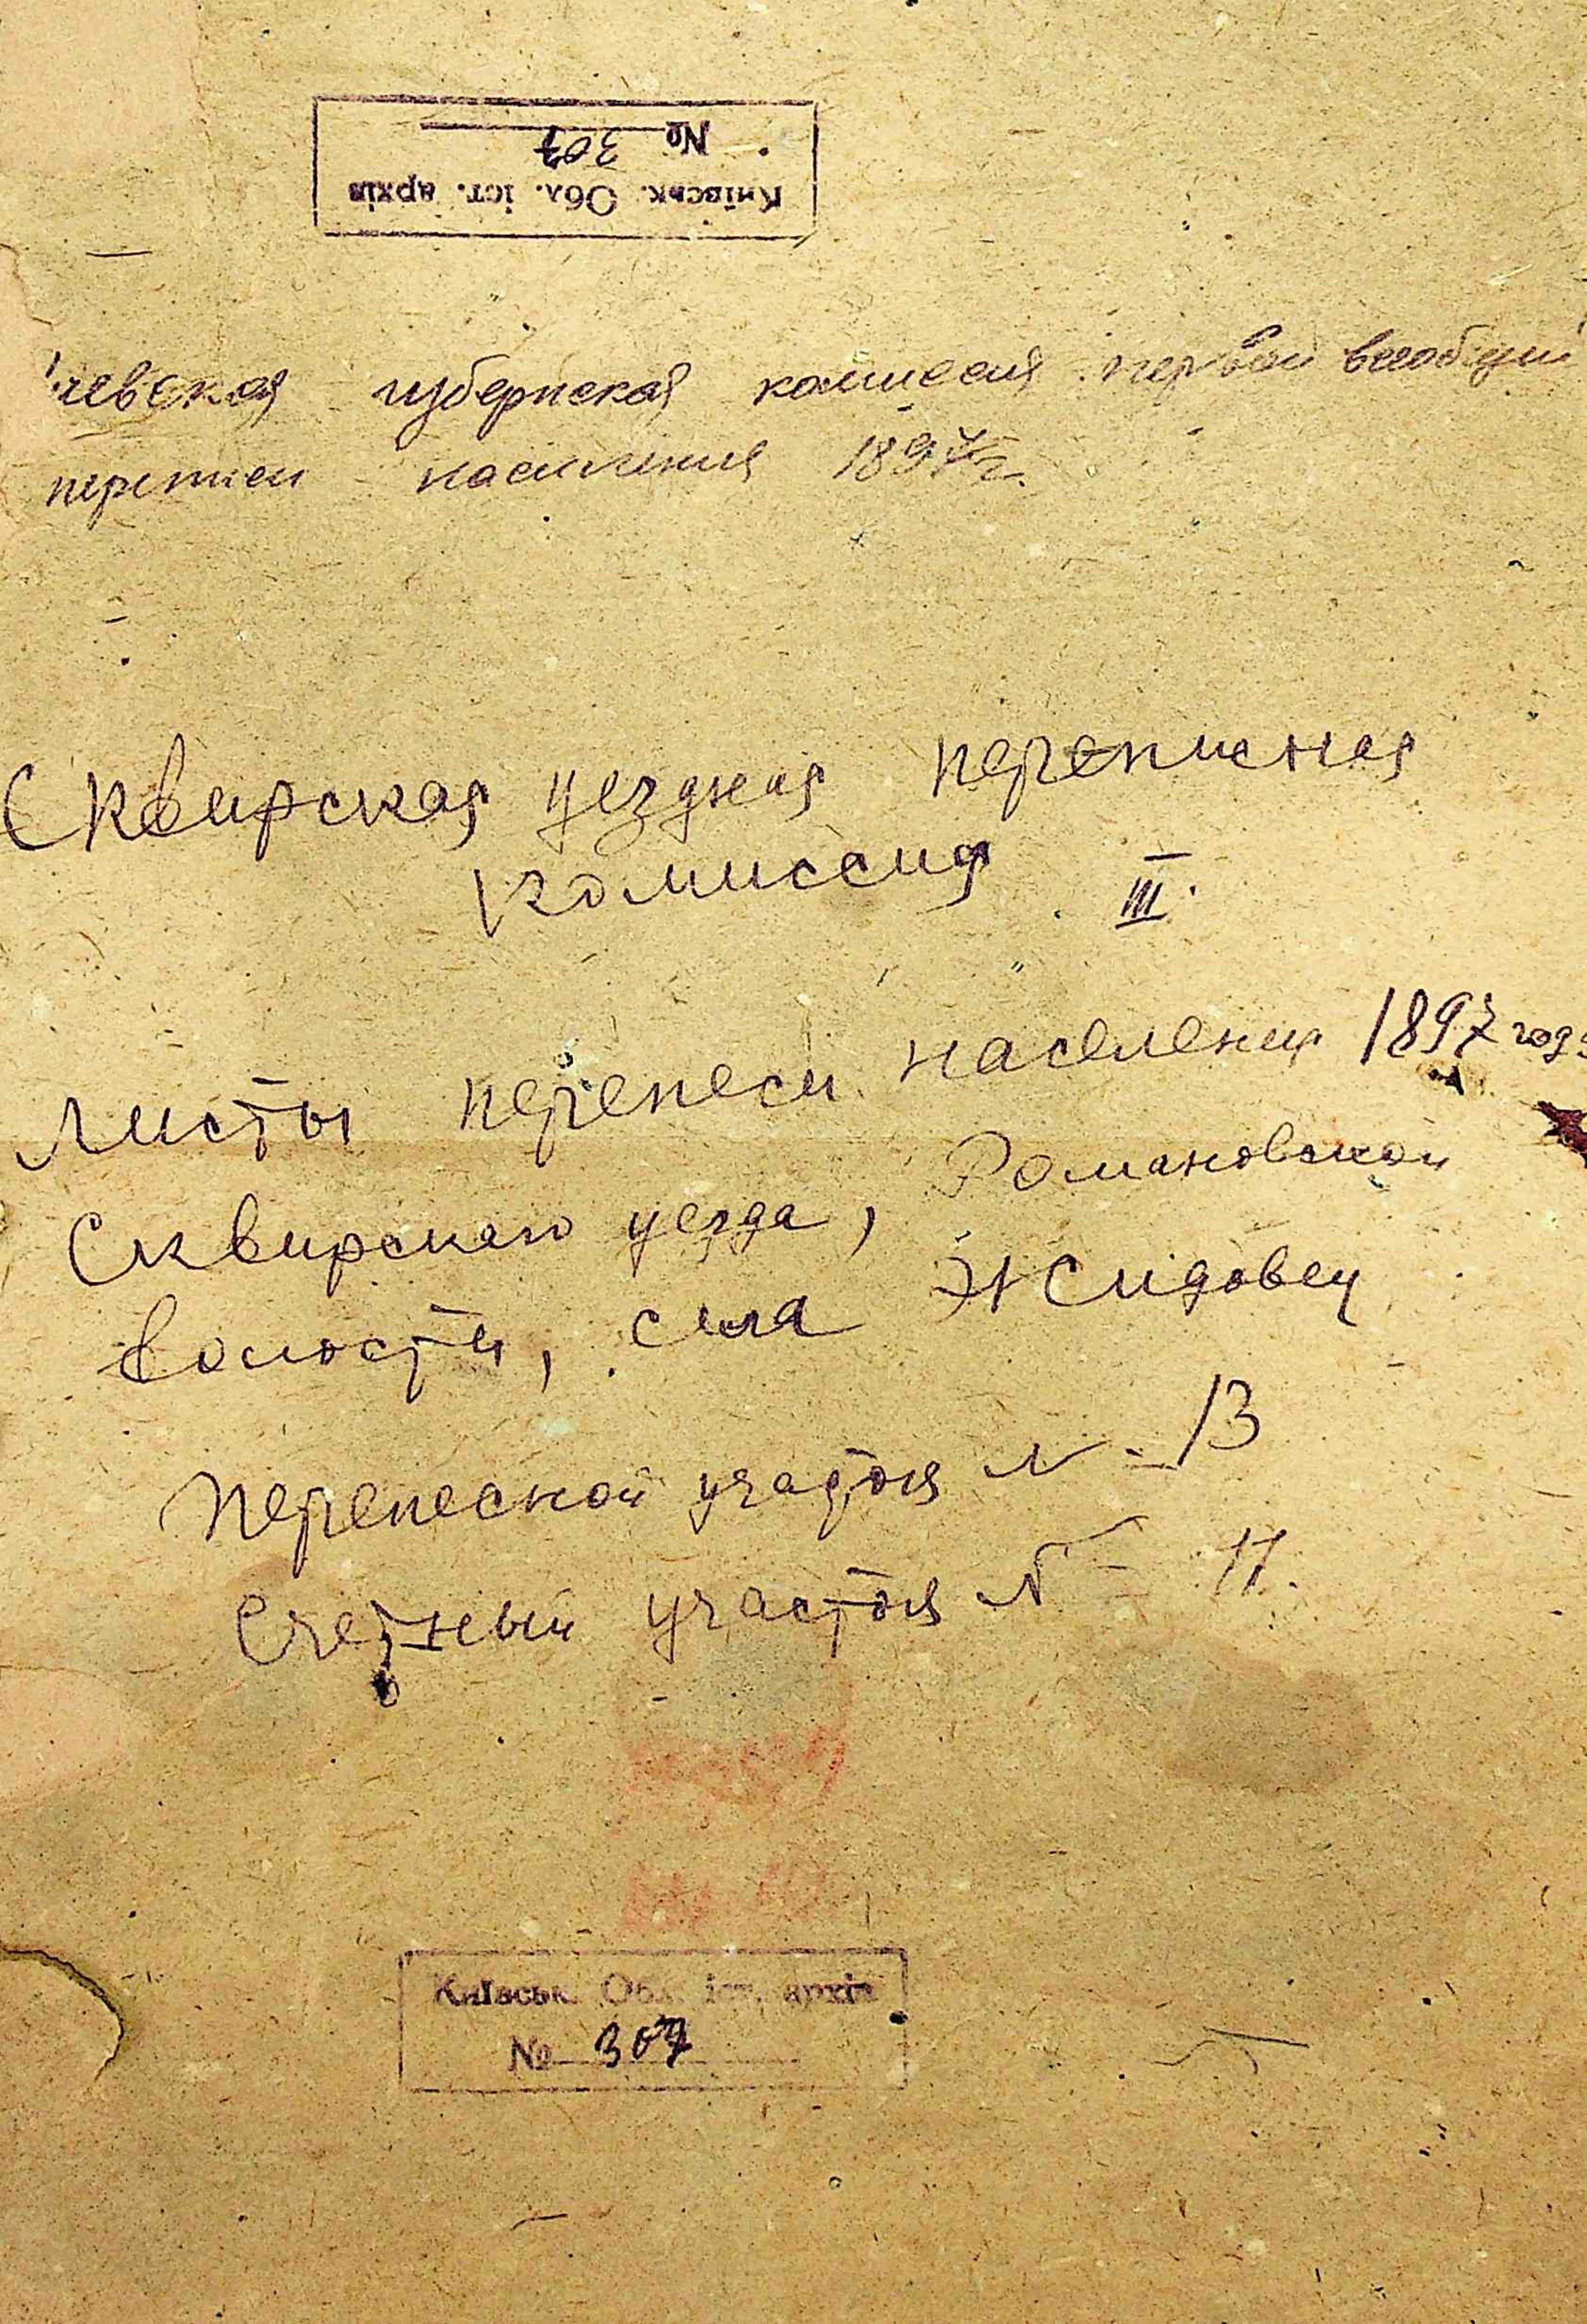 Київськ. Обл. іст. архів
№ 307
иевская губернская комиссия первой всеобщей
переписи населения 1897 г.
Сквирская уездная переписная
комиссия III.
Листы переписи населения 1897 года
Сквирского уезда, Романовской
волости, села Жидовец
Переписной участок № 13
Счетный участок №
Київськ. Обл. іст. архів
№ 307